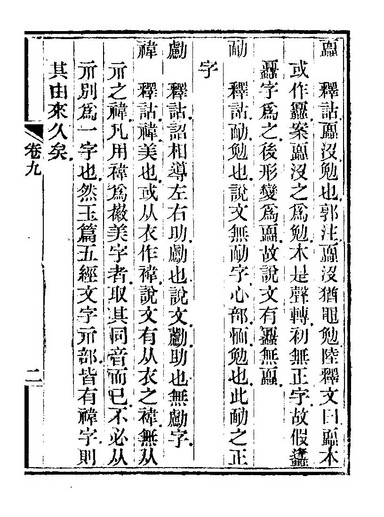 蠠　釋詁蠠沒勉也郭注蠠沒猶黽勉陸釋文曰蠠本
或作𧖅案蠠沒之爲勉本是聲轉初無正字故假蠭
𧖅字爲之後形變爲蠠故說文有𧖅無蠠
勔　釋詁勔勉也說文無勔字心部愐勉也此勔之正
字
勴　釋詁詔相導左右助勴也說文𠢱助也無勴字
禕　釋詁禕美也或从衣作褘說文有从衣之褘無从
示之禕凡用禕爲徽美字者取其同音而已不必从
示別爲一字也然玉篇五經文字示部皆有禕字則
其由來久矣
卷九
二